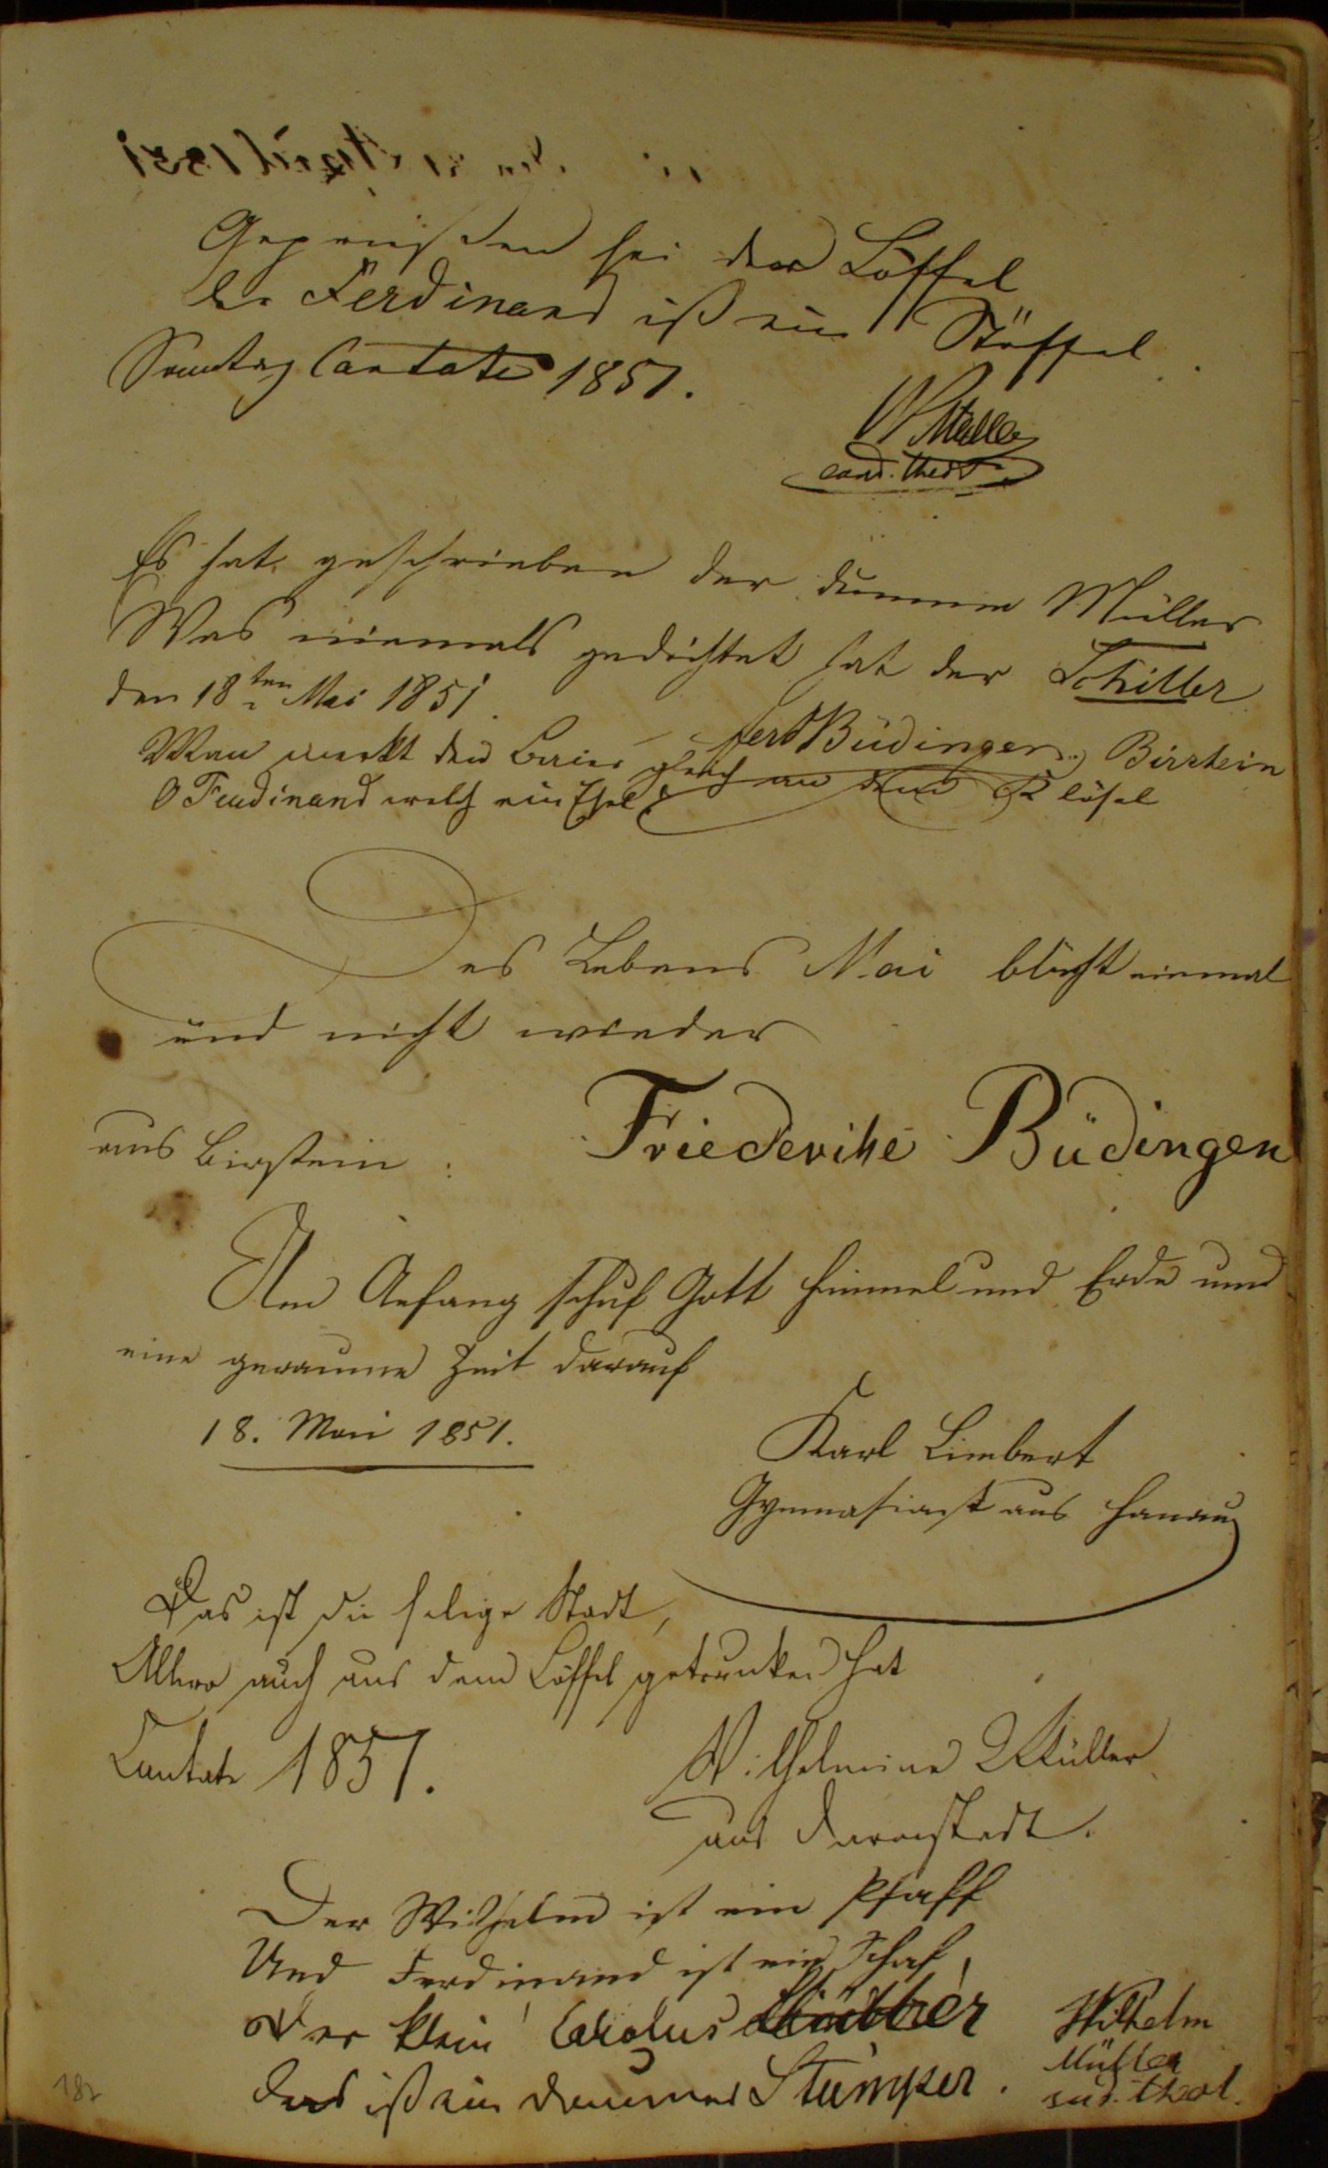 Gepriesen sei der Löffel
der Ferdinand ist ein Stöffel
Sonntag Cantate 1851.
W Müller
cand. theol.
Es hat geschrieben der dumme Müller
Was niemals gedichtet hat der Schiller
den 18ten Mai 1851.
Ferd Büdingen, Birstein
Man merkt den Baier gleich an dem
O Ferdinand welch ein Esel
Des Lebens Mai blüht einmal
und nicht wieder
Friederike Büdingen
aus Birstein
Am Anfang schuf Gott Himmel und Erde und
eine geraume Zeit darauf
18. Mai 1851.
Karl Limbert
Gymnasiast aus Hanau
Das ist die selige Stadt,
Allwo auch aus dem Löffel getrunken hat
Cantate 1851.
Wilhelmine Müller
aus Darmstadt.
Der Wilhelm ist ein Pfaff
Und Ferdinand ist ein Schaf,
Der klein' Carolus
Das ist ein dummer Stümper.
Wilhelm
Müller
theol.
182